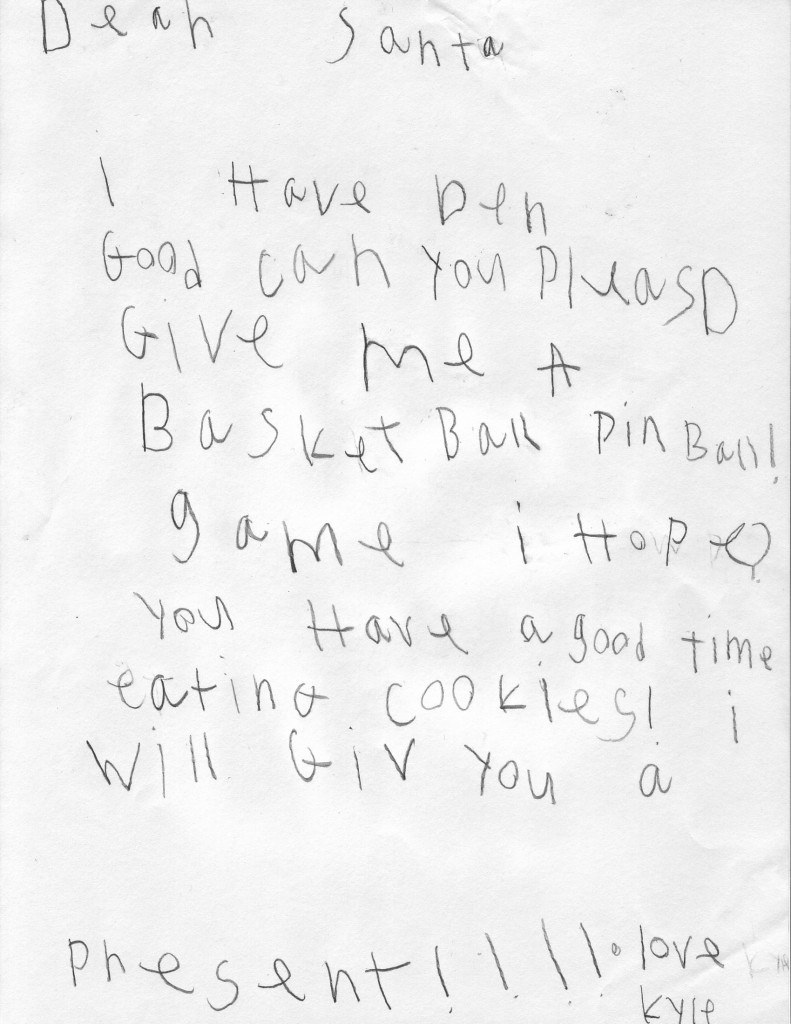 Dear Santa
I Have Den
Good can you Pleas
Give me A
BasketBall pin Ball!
game i Hope
you Have a good time
eating cookies! i
will Giv you a
present!!!! love
Kyle